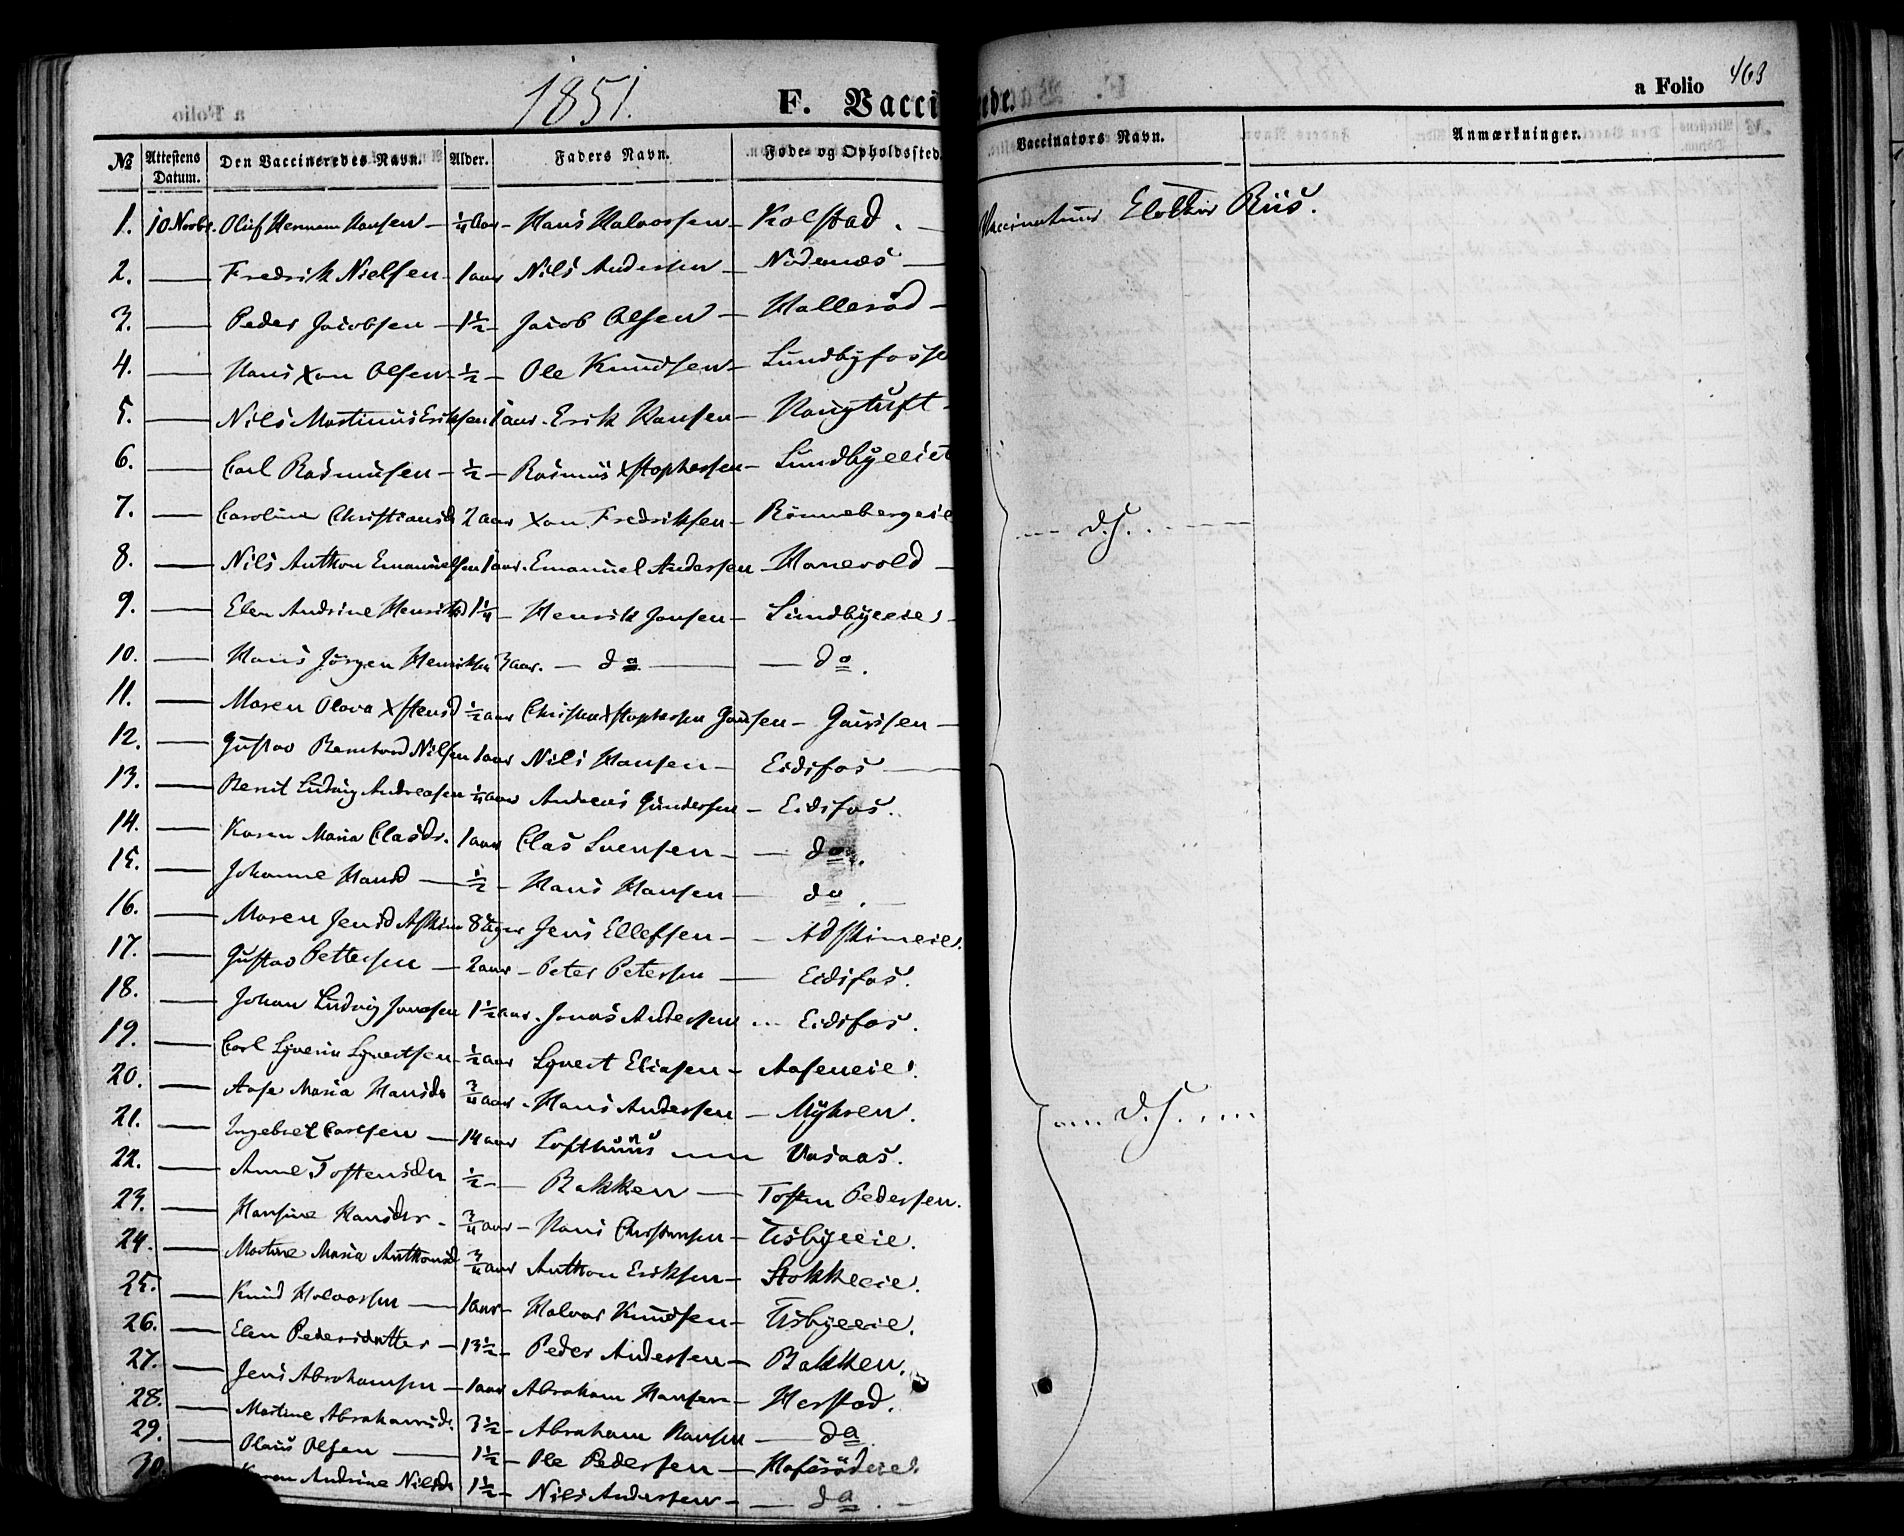 1851.
F. Vaccinerede.
a Folio 463
№ Attestens Datum. Den Vaccineredes Navn. Alder. Faders Navn. Føde- og Opholdssted. Vaccinators Navn. Anmærkninger.
1. 10 Novbr. Oluf Herman Hansen — ¼ Aar — Hans Halvorsen — Kolstad. Vaccinateur Riis.
2. — Fredrik Nielsen — 1 aar Nils Andersen — Nødenæs —
3. — Peder Jacobsen — 1½ — Jacob Olsen — Hallerød —
4. — Hans Xan Olsen — ½ — Ole Knudsen — Lundbyfosse
5. — Nils Martinius Eriksen 1 aar. Erik Hansen — Haugtuft —
6. — Carl Rasmusen — ½ — Rasmus Xstophersen — Lundbyeeiet
7. — Caroline Christiansd. 2 aar Xan Fredriksen — Rønnebergeie — d.S. —
8. — Nils Anthon Emanuelsen 1 aar. Emanuel Andersen Hanevold —
9. — Elen Andrine Henriksd 1¼ — Henrik Jansen — Lundbyeeie. —
10. — Hans Jørgen Henriksen 3 aar. — do — — do.
11. — Maren Olava Xstensd ½ aar Xstophersen — Gaussen —
12. — Gustav Bernhard Nilsen 1 aar Nils Hansen — Eidsfos —
13. — Bernt Ludvig Andreasen ¼ aar Andreas Gundersen — Eidsfos.
14. — Karen Maria Clasdr. 1 aar Clas Svensen — — do.
15. — Johanne Hansd — ½ — Hans Hansen — do. —
16. — Maren Jensd 8 Uger Jens Ellefsen — — Adskimeie.
17. — Gustav Pettersen — 2 aar — Peter Petersen — Eidsfos.
18. — Johan Ludvig Jonasen 1½ aar. Jonas Andersen — Eidsfos.
19. — Carl Syverin Syvertsen — ½ aar Syvert Eliasen — Aaseneie.
20. — Aase Maria Hansdr ¾ aar. Hans Andersen — Myhren. — d.S. —
21. — Ingebret Carlsen — 14 aar Lofthuus — Vasaas.
22. — Anne Tostensdr ½ — — Bakken — Tosten Pedersen.
23. — Hansine Hansdr — ¾ aar — Hans Christensen — Tisbyeeie.
24. — Martine Maria Anthonsd ¾ aar Anthon Eriksen — Stokkeeie.
25. — Knud Halvorsen — 1 aar — Halvor Knudsen — Tisbyeeie.
26. — Elen Pedersdatter — 13½ — Peder Andersen — Bakken.
27. — Jens Abrahamsen — 1 aar Abraham Hansen — Herstad.
28. — Martine Abrahamsdr. 3½ — Abraham Hansen — do
29. — Olaus Olsen — 1½ — Ole Pedersen — Hafsrødeie.
30. Karen Andrine Nilsdr 1½ — Nils Andersen — — do. —